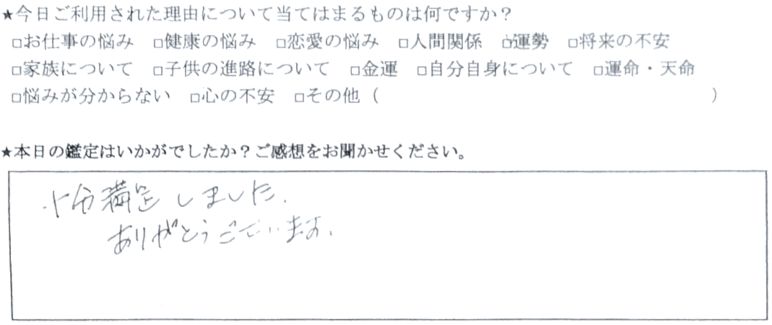 ★今日ご利用された理由について当てはまるものは何ですか？
□お仕事の悩み □健康の悩み □恋愛の悩み □人間関係 ☑運勢 □将来の不安
□家族について □子供の進路について □金運 □自分自身について □運命・天命
□悩みが分からない □心の不安 □その他（　　　　　　　　　　　　　　　　）
★本日の鑑定はいかがでしたか？ご感想をお聞かせください。
十分満足しました.
ありがとうございます.